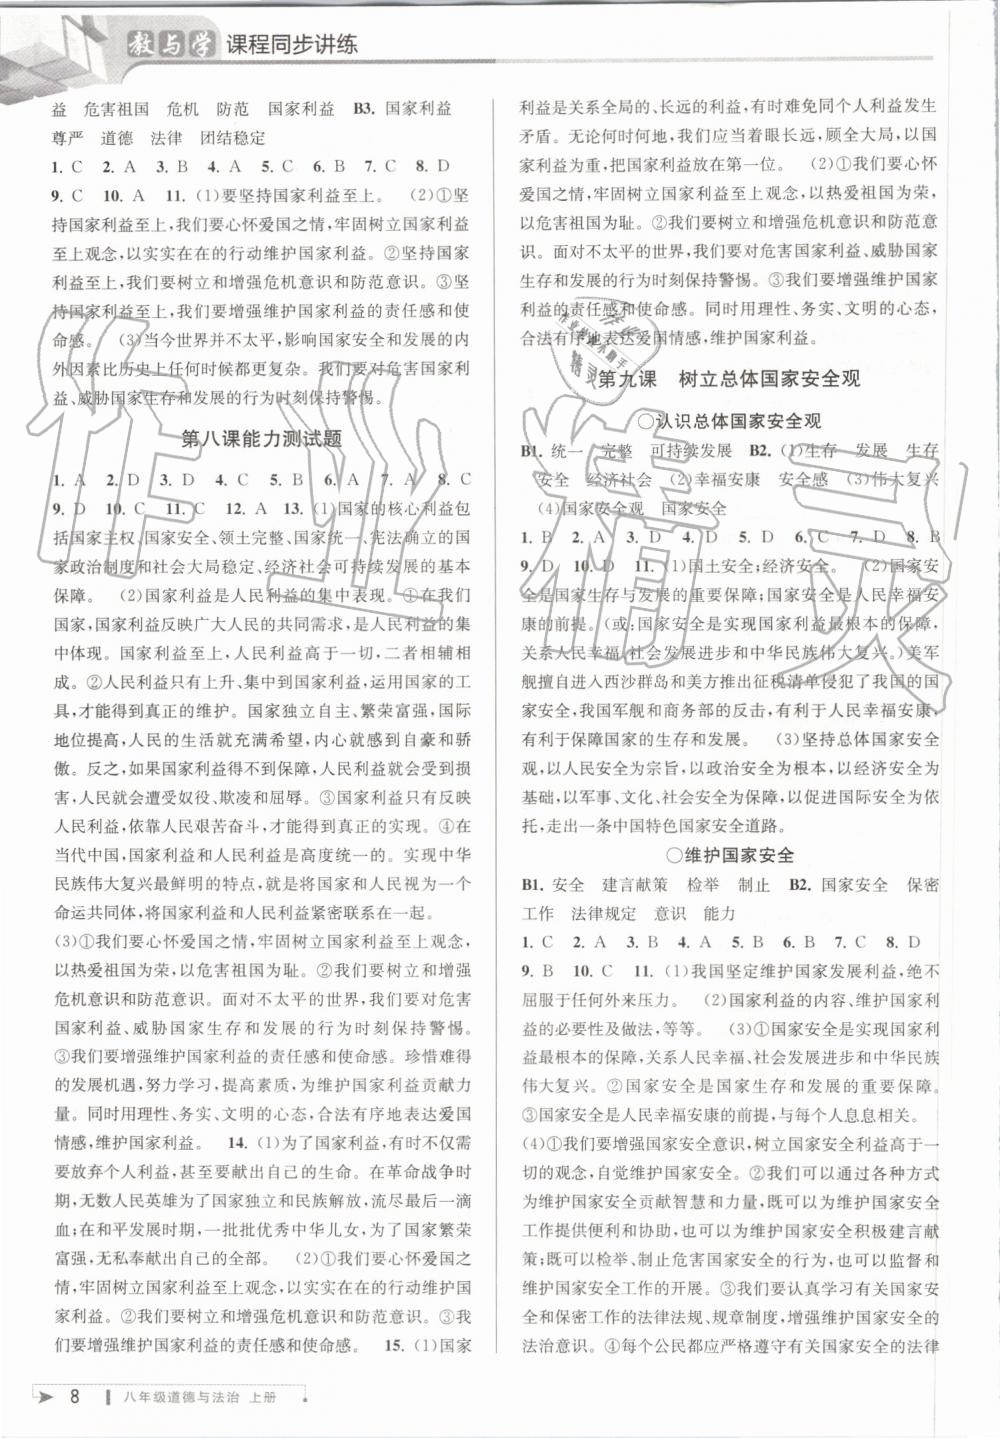 教与学 课程同步讲练
益 危害祖国 危机 防范 国家利益 B3. 国家利益
尊严 道德 法律 团结稳定
1. C 2. A 3. B 4. A 5. B 6. B 7. C 8. D
9. C 10. A 11. (1)要坚持国家利益至上。 (2)①坚
持国家利益至上,我们要心怀爱国之情,牢固树立国家利益
至上观念,以实实在在的行动维护国家利益。②坚持国家
利益至上,我们要树立和增强危机意识和防范意识。③坚
持国家利益至上,我们要增强维护国家利益的责任感和使
命感。 (3)当今世界并不太平,影响国家安全和发展的内
外因素比历史上任何时候都更复杂。我们要对危害国家利
益、威胁国家生存和发展的行为时刻保持警惕。
第八课能力测试题
1. A 2. D 3. D 4. C 5. B 6. A 7. A 8. C
9. D 10. C 11. C 12. A 13. (1)国家的核心利益包
括国家主权、国家安全、领土完整、国家统一、宪法确立的国
家政治制度和社会大局稳定、经济社会可持续发展的基本
保障。 (2)国家利益是人民利益的集中表现。①在我们
国家,国家利益反映广大人民的共同需求,是人民利益的集
中体现。国家利益至上,人民利益高于一切,二者相辅相
成。②人民利益只有上升、集中到国家利益,运用国家的工
具,才能得到真正的维护。国家独立自主、繁荣富强,国际
地位提高,人民的生活就充满希望,内心就感到自豪和骄
傲。反之,如果国家利益得不到保障,人民利益就会受损,
人民就会遭受奴役、欺凌和屈辱。③国家利益只有反映
人民利益,依靠人民艰苦奋斗,才能得到真正的实现。④在
当代中国,国家利益和人民利益是高度统一的。实现中华
民族伟大复兴最鲜明的特点,就是将国家和人民视为一个
命运共同体,将国家利益和人民利益紧密联结在一起。
(3)①我们要心怀爱国之情,牢固树立国家利益至上观念,
以热爱祖国为荣,以危害祖国为耻。②我们要树立和增强
危机意识和防范意识。面对不太平的世界,我们要对危害
国家利益、威胁国家生存和发展的行为时刻保持警惕。
③我们要增强维护国家利益的责任感和使命感。珍惜难得
的发展机遇,努力学习,提高素质,为维护国家利益贡献力
量。同时用理性、务实、文明的心态,合法有序地表达爱国
情感,维护国家利益。 14. (1)为了国家利益,有时不仅需
要放弃个人利益,甚至要献出自己的生命。在革命战争时
期,无数人民英雄为了国家独立和民族解放,流尽最后一滴
血;在和平发展时期,一批批优秀中华儿女,为了国家繁荣
富强,无私奉献出自己的全部。 (2)①我们要心怀爱国之
情,牢固树立国家利益至上观念,以实实在在的行动维护国
家利益。②我们要树立和增强危机意识和防范意识。③我
们要增强维护国家利益的责任感和使命感。 15. (1)国家
利益是关系全局的、长远的利益,有时难免同个人利益发生
矛盾。无论何时何地,我们应当着眼长远,顾全大局,以国
家利益为重,把国家利益放在第一位。 (2)①我们要心怀
爱国之情,牢固树立国家利益至上观念,以热爱祖国为荣,
以危害祖国为耻。②我们要树立和增强危机意识和防范意
识。面对不太平的世界,我们要对危害国家利益、威胁国家
生存和发展的行为时刻保持警惕。③我们要增强维护国家
利益的责任感和使命感。同时用理性、务实、文明的心态,
合法有序地表达爱国情感,维护国家利益。
第九课 树立总体国家安全观
○认识总体国家安全观
B1. 统一 完整 可持续发展 B2. (1)生存 发展 生存
安全 经济社会 (2)幸福安康 安全感 (3)伟大复兴
(4)国家安全观 国家安全
1. B 2. A 3. A 4. D 5. D 6. C 7. D 8. B
9. D 10. D 11. (1)国土安全;经济安全。 (2)国家安
全是国家生存与发展的重要保障;国家安全是人民幸福安
康的前提。(或:国家安全是实现国家利益最根本的保障,
关系人民幸福、社会发展进步和中华民族伟大复兴。)美军
舰擅自进入西沙群岛和美方推出征税清单侵犯了我国的国
家安全,我国军舰和商务部的反击,有利于人民幸福安康,
有利于保障国家的生存和发展。 (3)坚持总体国家安全
观,以人民安全为宗旨,以政治安全为根本,以经济安全为
基础,以军事、文化、社会安全为保障,以促进国际安全为依
托,走出一条中国特色国家安全道路。
○维护国家安全
B1. 安全 建言献策 检举 制止 B2. 国家安全 保密
工作 法律规定 意识 能力
1. C 2. A 3. B 4. A 5. B 6. B 7. C 8. D
9. B 10. C 11. (1)我国坚定维护国家发展利益,绝不
屈服于任何外来压力。 (2)国家利益的内容、维护国家利
益的必要性及做法,等等。 (3)①国家安全是实现国家利
益最根本的保障,关系人民幸福、社会发展进步和中华民族
伟大复兴。②国家安全是国家生存和发展的重要保障。
③国家安全是人民幸福安康的前提,与每个人息息相关。
(4)①我们要增强国家安全意识,树立国家安全利益高于一
切的观念,自觉维护国家安全。②我们可以通过各种方式
为维护国家安全贡献智慧和力量,既可以为维护国家安全
工作提供便利和协助,也可以为维护国家安全积极建言献
策;既可以检举、制止危害国家安全的行为,也可以监督和
维护国家安全工作的开展。③我们要认真学习有关国家安
全和保密工作的法律法规、规章制度,增强维护国家安全的
法治意识。④每个公民都应严格遵守有关国家安全的法律
8 八年级道德与法治 上册
作业精灵